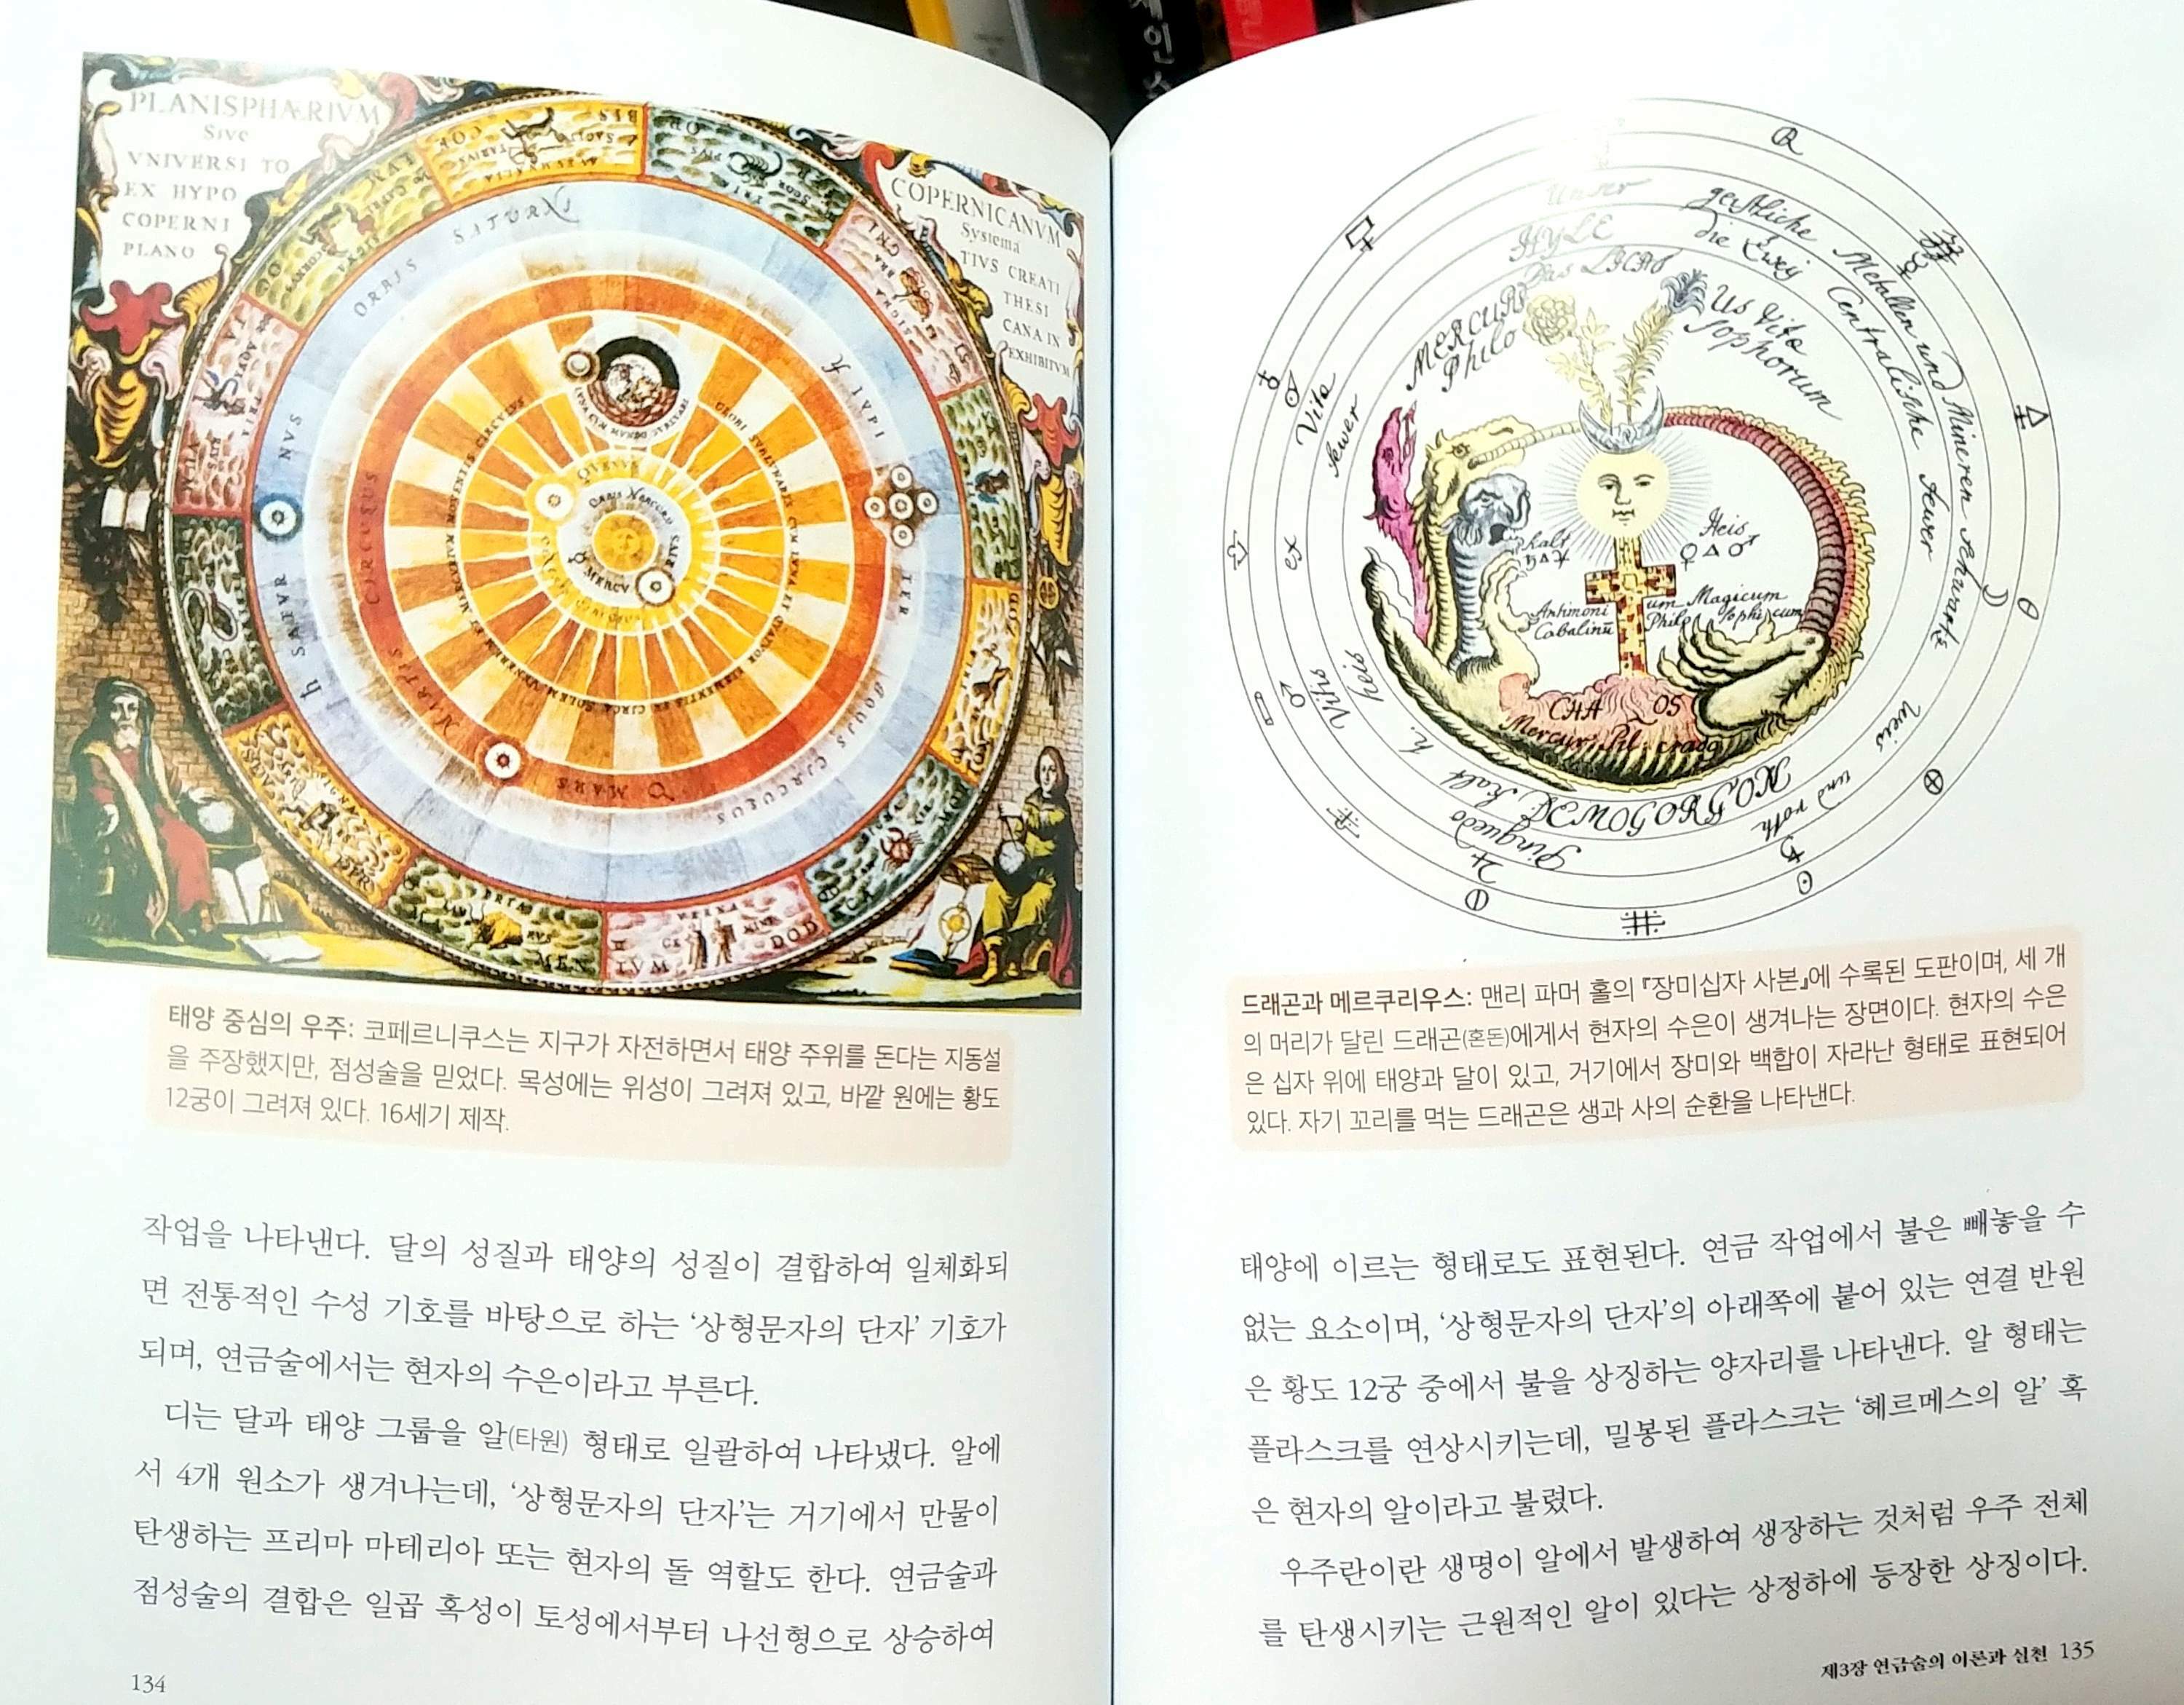 PLANISPHÆRIVM
Sive
VNIVERSI TO
EX HYPO
COPERNI
PLANO
COPERNICANVM
Systema
TIVS CREATI
THESI
CANA IN
EXHIBITVM
ORBIS SATURNI
IVPI
TER
CIRCULUS
MARTIS
MARS
MERCV
MEN
DOD
태양 중심의 우주: 코페르니쿠스는 지구가 자전하면서 태양 주위를 돈다는 지동설
을 주장했지만, 점성술을 믿었다. 목성에는 위성이 그려져 있고, 바깥 원에는 황도
12궁이 그려져 있다. 16세기 제작.
작업을 나타낸다. 달의 성질과 태양의 성질이 결합하여 일체화되
면 전통적인 수성 기호를 바탕으로 하는 ‘상형문자의 단자’ 기호가
되며, 연금술에서는 현자의 수은이라고 부른다.
디는 달과 태양 그룹을 알(타원) 형태로 일괄하여 나타냈다. 알에
서 4개 원소가 생겨나는데, ‘상형문자의 단자’는 거기에서 만물이
탄생하는 프리마 마테리아 또는 현자의 돌 역할도 한다. 연금술과
점성술의 결합은 일곱 혹성이 토성에서부터 나선형으로 상승하여
134
Unser geistliche Metallen und Mineren
HYLE die Zwej Centralische feuer
Das LICHT
MERCURI Us Vita
Philo sophorum
Vita
fewer
kalt
Heis
Antimoni um Magicum
Cabalinū Philo sophicum
CHA OS
Mercur
weis und roth
Pinguedo
heis
kalt
태양에 이르는 형태로도 표현된다. 연금 작업에서 불은 빼놓을 수
없는 요소이며, ‘상형문자의 단자’의 아래쪽에 붙어 있는 연결 반원
은 황도 12궁 중에서 불을 상징하는 양자리를 나타낸다. 알 형태는
플라스크를 연상시키는데, 밀봉된 플라스크는 ‘헤르메스의 알’ 혹
은 현자의 알이라고 불렸다.
우주란이란 생명이 알에서 발생하여 생장하는 것처럼 우주 전체
를 탄생시키는 근원적인 알이 있다는 상정하에 등장한 상징이다.
드래곤과 메르쿠리우스: 맨리 파머 홀의 『장미십자 사본』에 수록된 도판이며, 세 개
의 머리가 달린 드래곤(혼돈)에게서 현자의 수은이 생겨나는 장면이다. 현자의 수은
은 십자 위에 태양과 달이 있고, 거기에서 장미와 백합이 자라난 형태로 표현되어
있다. 자기 꼬리를 먹는 드래곤은 생과 사의 순환을 나타낸다.
제3장 연금술의 이론과 실천 135